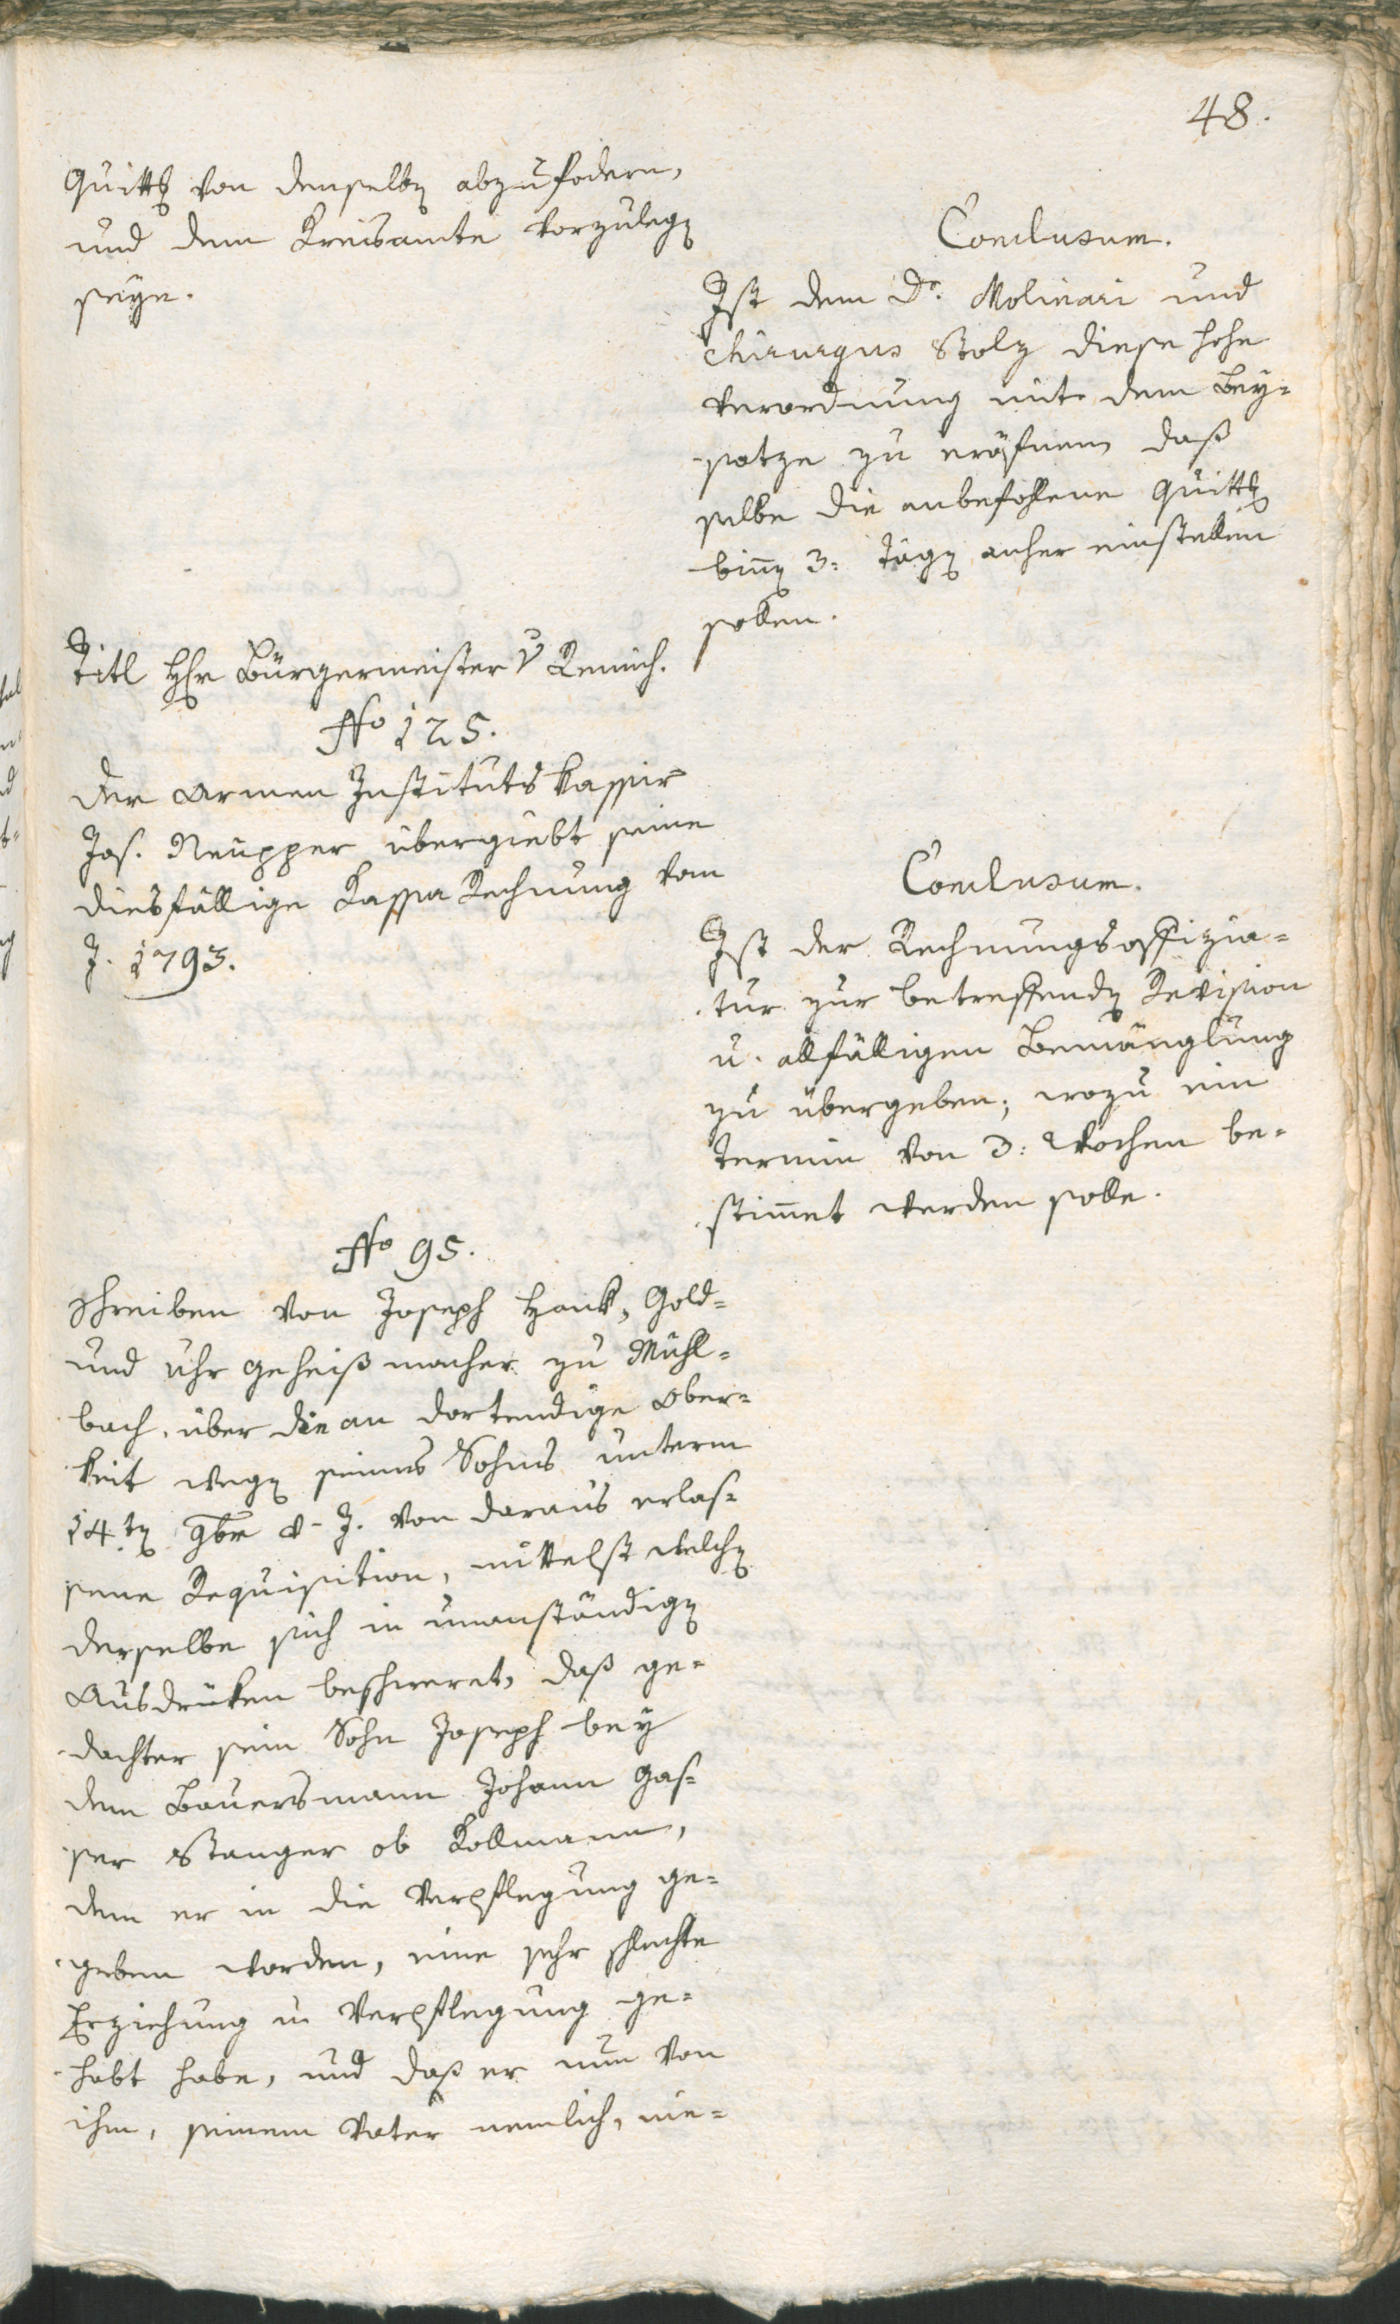 48.
Quittg von denselbẽ abzufodern,
und dem Kreisamte vorzulegẽ
seÿe.
Conclusum.
Ist dem Dr. Molinari und
Chirurgus Stolz diese hohe
Verordnung mit dem Beÿ-
satze zu eröfnen, daß
selbe die anbefohlene Quittg
biñẽ 3: Tägẽ anher einstellen
sollen.
Titl Hhr Bürgermeister v
No 125.
Der Armen Instituts Kassir
Jos. Neupper übergiebt seine
diesfällige Kassa Rechnung vom
J. 1793.
Conclusum.
Ist der Rechnungsoffizia-
tur zur betreffendẽ Revision
u. allfälligen Bemänglung
zu übergeben; wozu ein
Termin von 3: Wochen be-
stim̃et werden solle.
No 95.
Schreiben von Joseph Hauk, Gold-
und Uhr geheiß macher zu Mühl-
bach, über die an dortendige Ober-
keit wegẽ seines Sohns unterm
14.tẽ 9br v. J. von daraus erlas-
sene Requisition, mittelst welchẽ
derselbe sich in unanständigẽ
Ausdrüken beschweret, daß ge-
dachter sein Sohn Joseph beÿ
dem Bauersmann Johann Gas-
ser Stanger ob Kollmann,
dem er in die Verpflegung ge-
geben worden, eine sehr schlechte
Erziehung u Verpflegung ge-
habt habe, und daß er nun von
ihm, seinem Vater nemlich, nie-